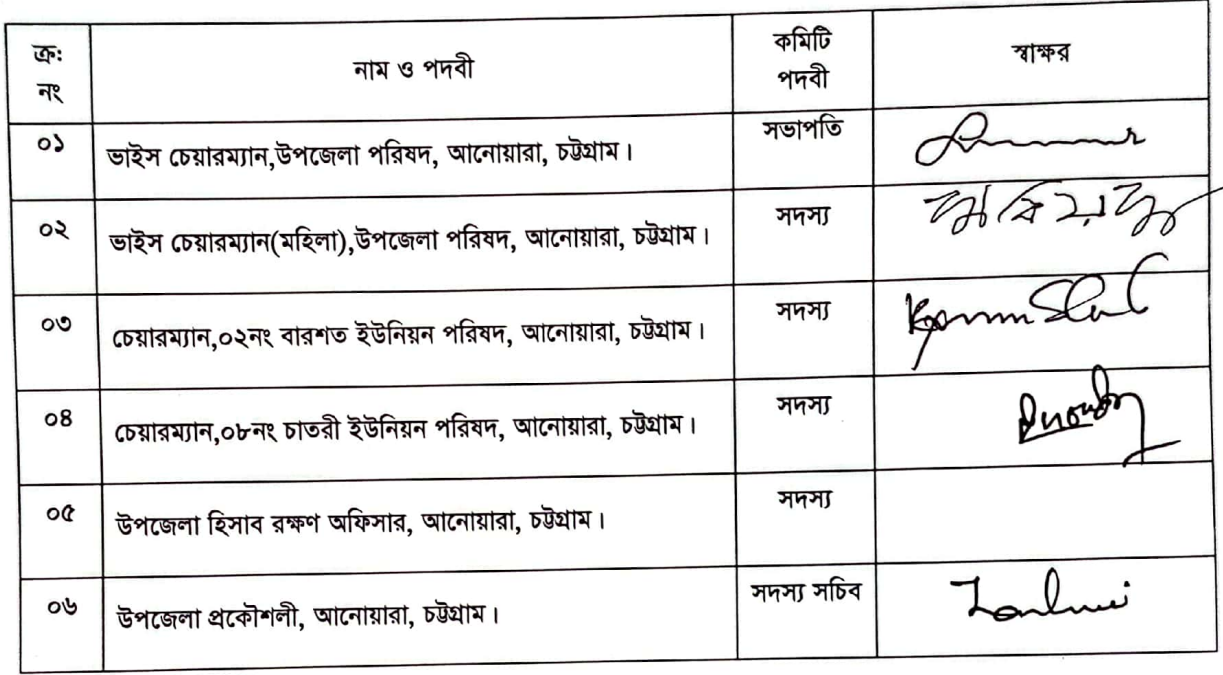 ক্র: নং নাম ও পদবী কমিটি পদবী স্বাক্ষর
০১ ভাইস চেয়ারম্যান,উপজেলা পরিষদ, আনোয়ারা, চট্টগ্রাম। সভাপতি
০২ ভাইস চেয়ারম্যান(মহিলা),উপজেলা পরিষদ, আনোয়ারা, চট্টগ্রাম। সদস্য
০৩ চেয়ারম্যান,০২নং বারশত ইউনিয়ন পরিষদ, আনোয়ারা, চট্টগ্রাম। সদস্য
০৪ চেয়ারম্যান,০৮নং চাতরী ইউনিয়ন পরিষদ, আনোয়ারা, চট্টগ্রাম। সদস্য
০৫ উপজেলা হিসাব রক্ষণ অফিসার, আনোয়ারা, চট্টগ্রাম। সদস্য
০৬ উপজেলা প্রকৌশলী, আনোয়ারা, চট্টগ্রাম। সদস্য সচিব